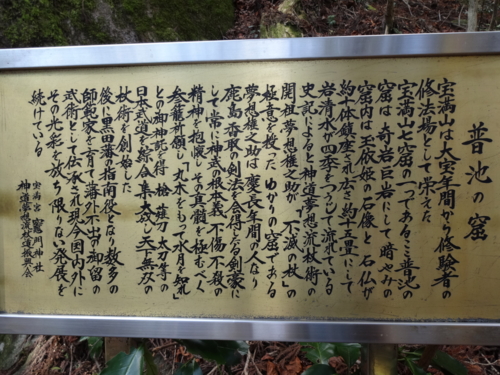 普池の窟
宝満山は大宝年間から修験者の
修法場として栄えた
宝満山七窟の一つであるこの普池の
窟は奇岩巨岩にして暗やみの
窟内は玉依姫の石像と石仏が
約十体鎮座され広さ約十五畳にして
岩清水が四季をつうじて流れている
史記によると神道夢想流杖術の
開祖夢想権之助が「不滅の杖」の
極意を授ったゆかりの窟である
夢想権之助は慶長年間の人なり
鹿島香取の剣法を会得した剣豪に
して常に神武の根本義不傷不殺の
精神を抱懐しその真髄を極むべく
参籠祈願し「丸木をもって水月を知れ」
との御神託を得 槍 薙刀 太刀等の
日本武道を綜合集大成し天下無双の
杖術を創始した
後に黒田藩の指南役となり数多の
師範家を育て藩外不出の御留の
武術として伝承され現今国内外に
その光彩を放ち限りない発展を
続けている
宝満宮竈門神社
神道夢想流杖道振興会